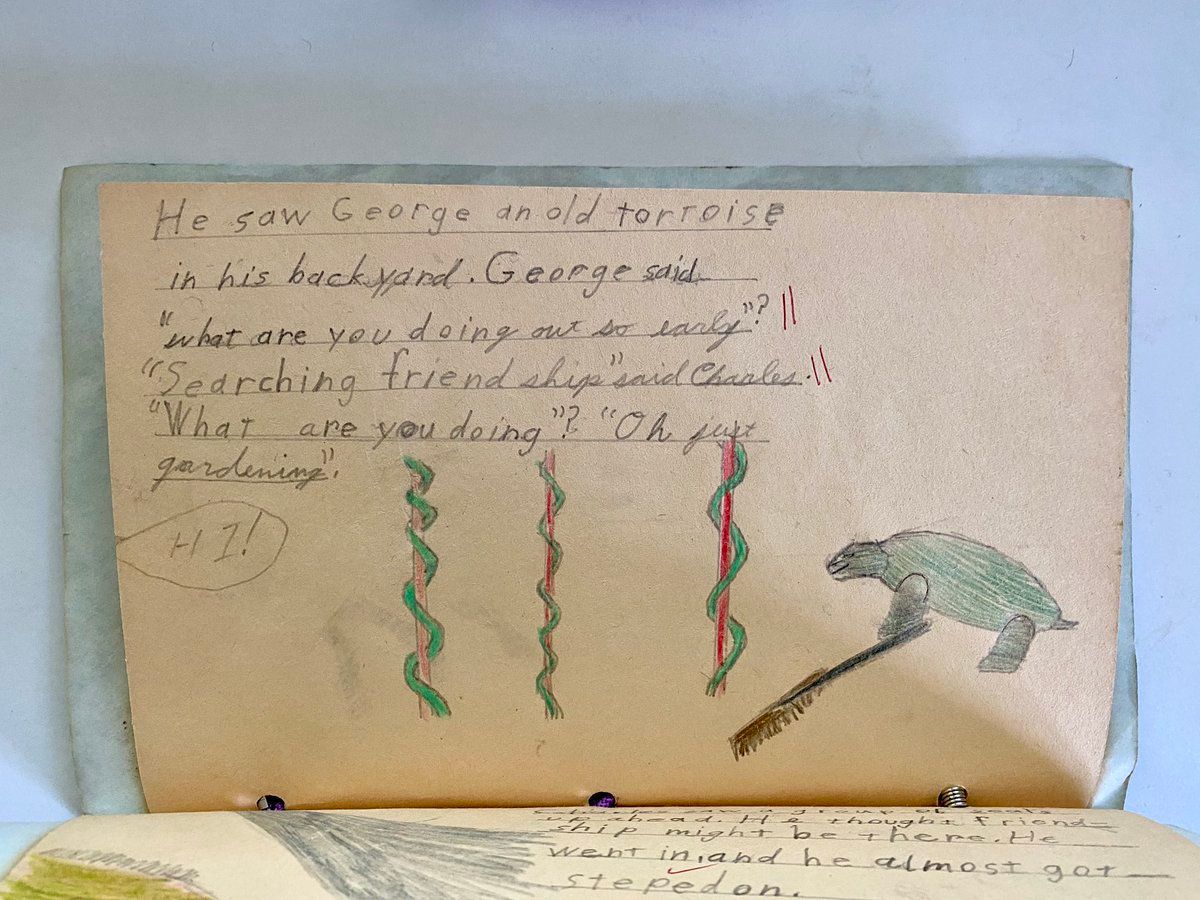 He saw George an old tortoise
in his backyard. George said
"what are you doing out so early"?
"Searching friend ship" said Charles.
"What are you doing"? "Oh just
gardening".
HI!
a group of
up ahead. He thought friend-
ship might be there. He
went in, and he almost got
steped on.